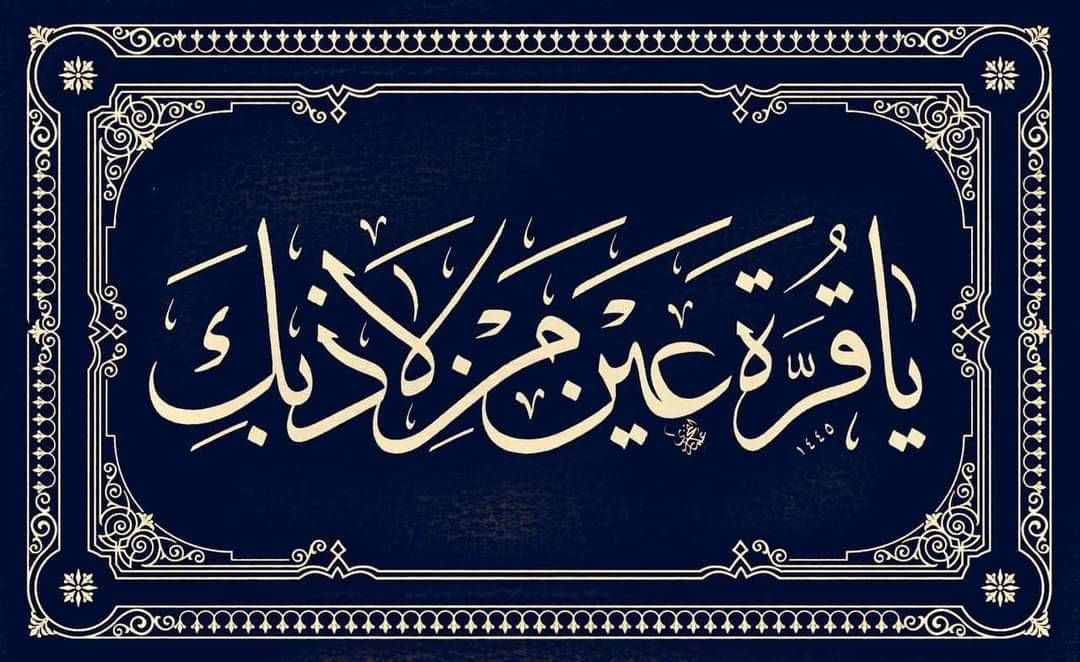 يَا قُرَّةَ عَيْنِ مَنْ لَاذَ بِكَ
١٤٤٥